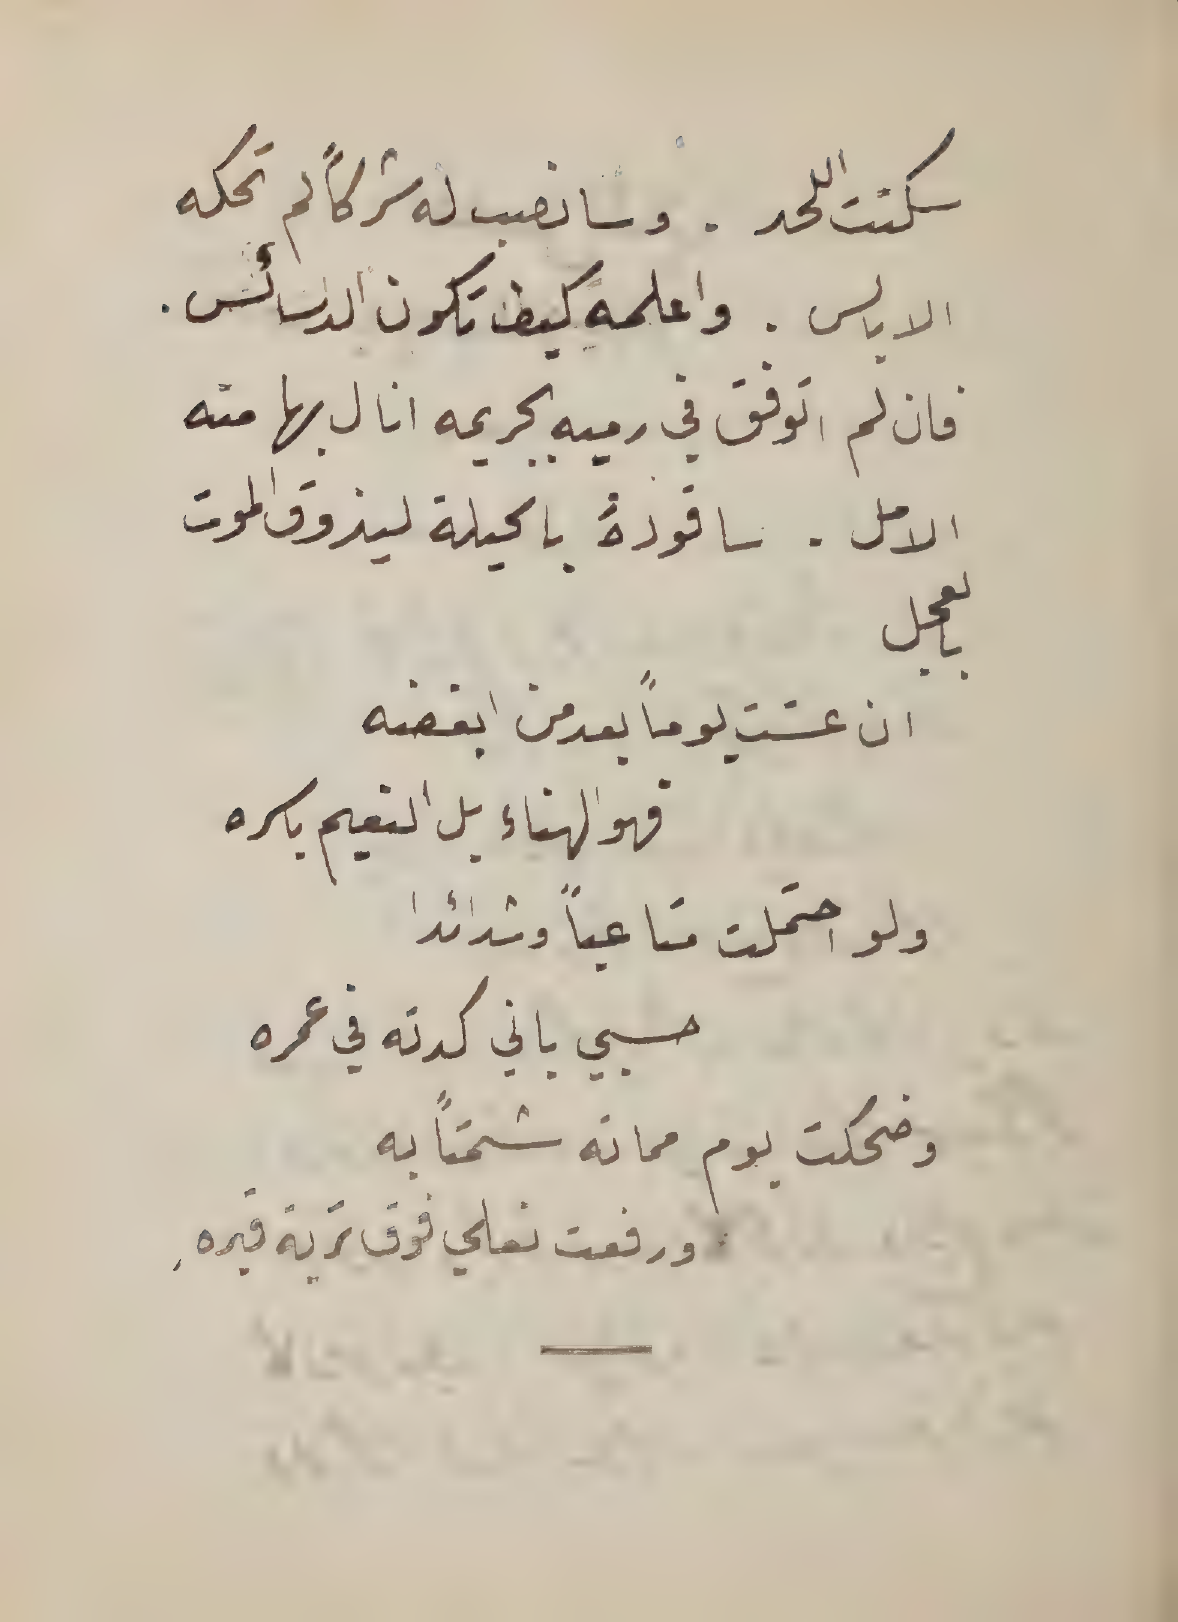 سكنت اللحد . وسانصب له شركاً لم تحكه
الابالس . واعلمه كيف تكون الدسائس .
فان لم اتوفق في رميه بجريمه انال بها منه
الامل . ساقودهُ بالحيلة ليذوق الموت
بالعجل
ان عشت يوماً بعد من ابغضته
فهو الهناء بل النعيم باسره
ولو احتملت متاعباً وشدائدا
حسبي باني كدته في عمره
وضحكت يوم مماته شمتاً به
ورفعت نعلي فوق تربة قبره